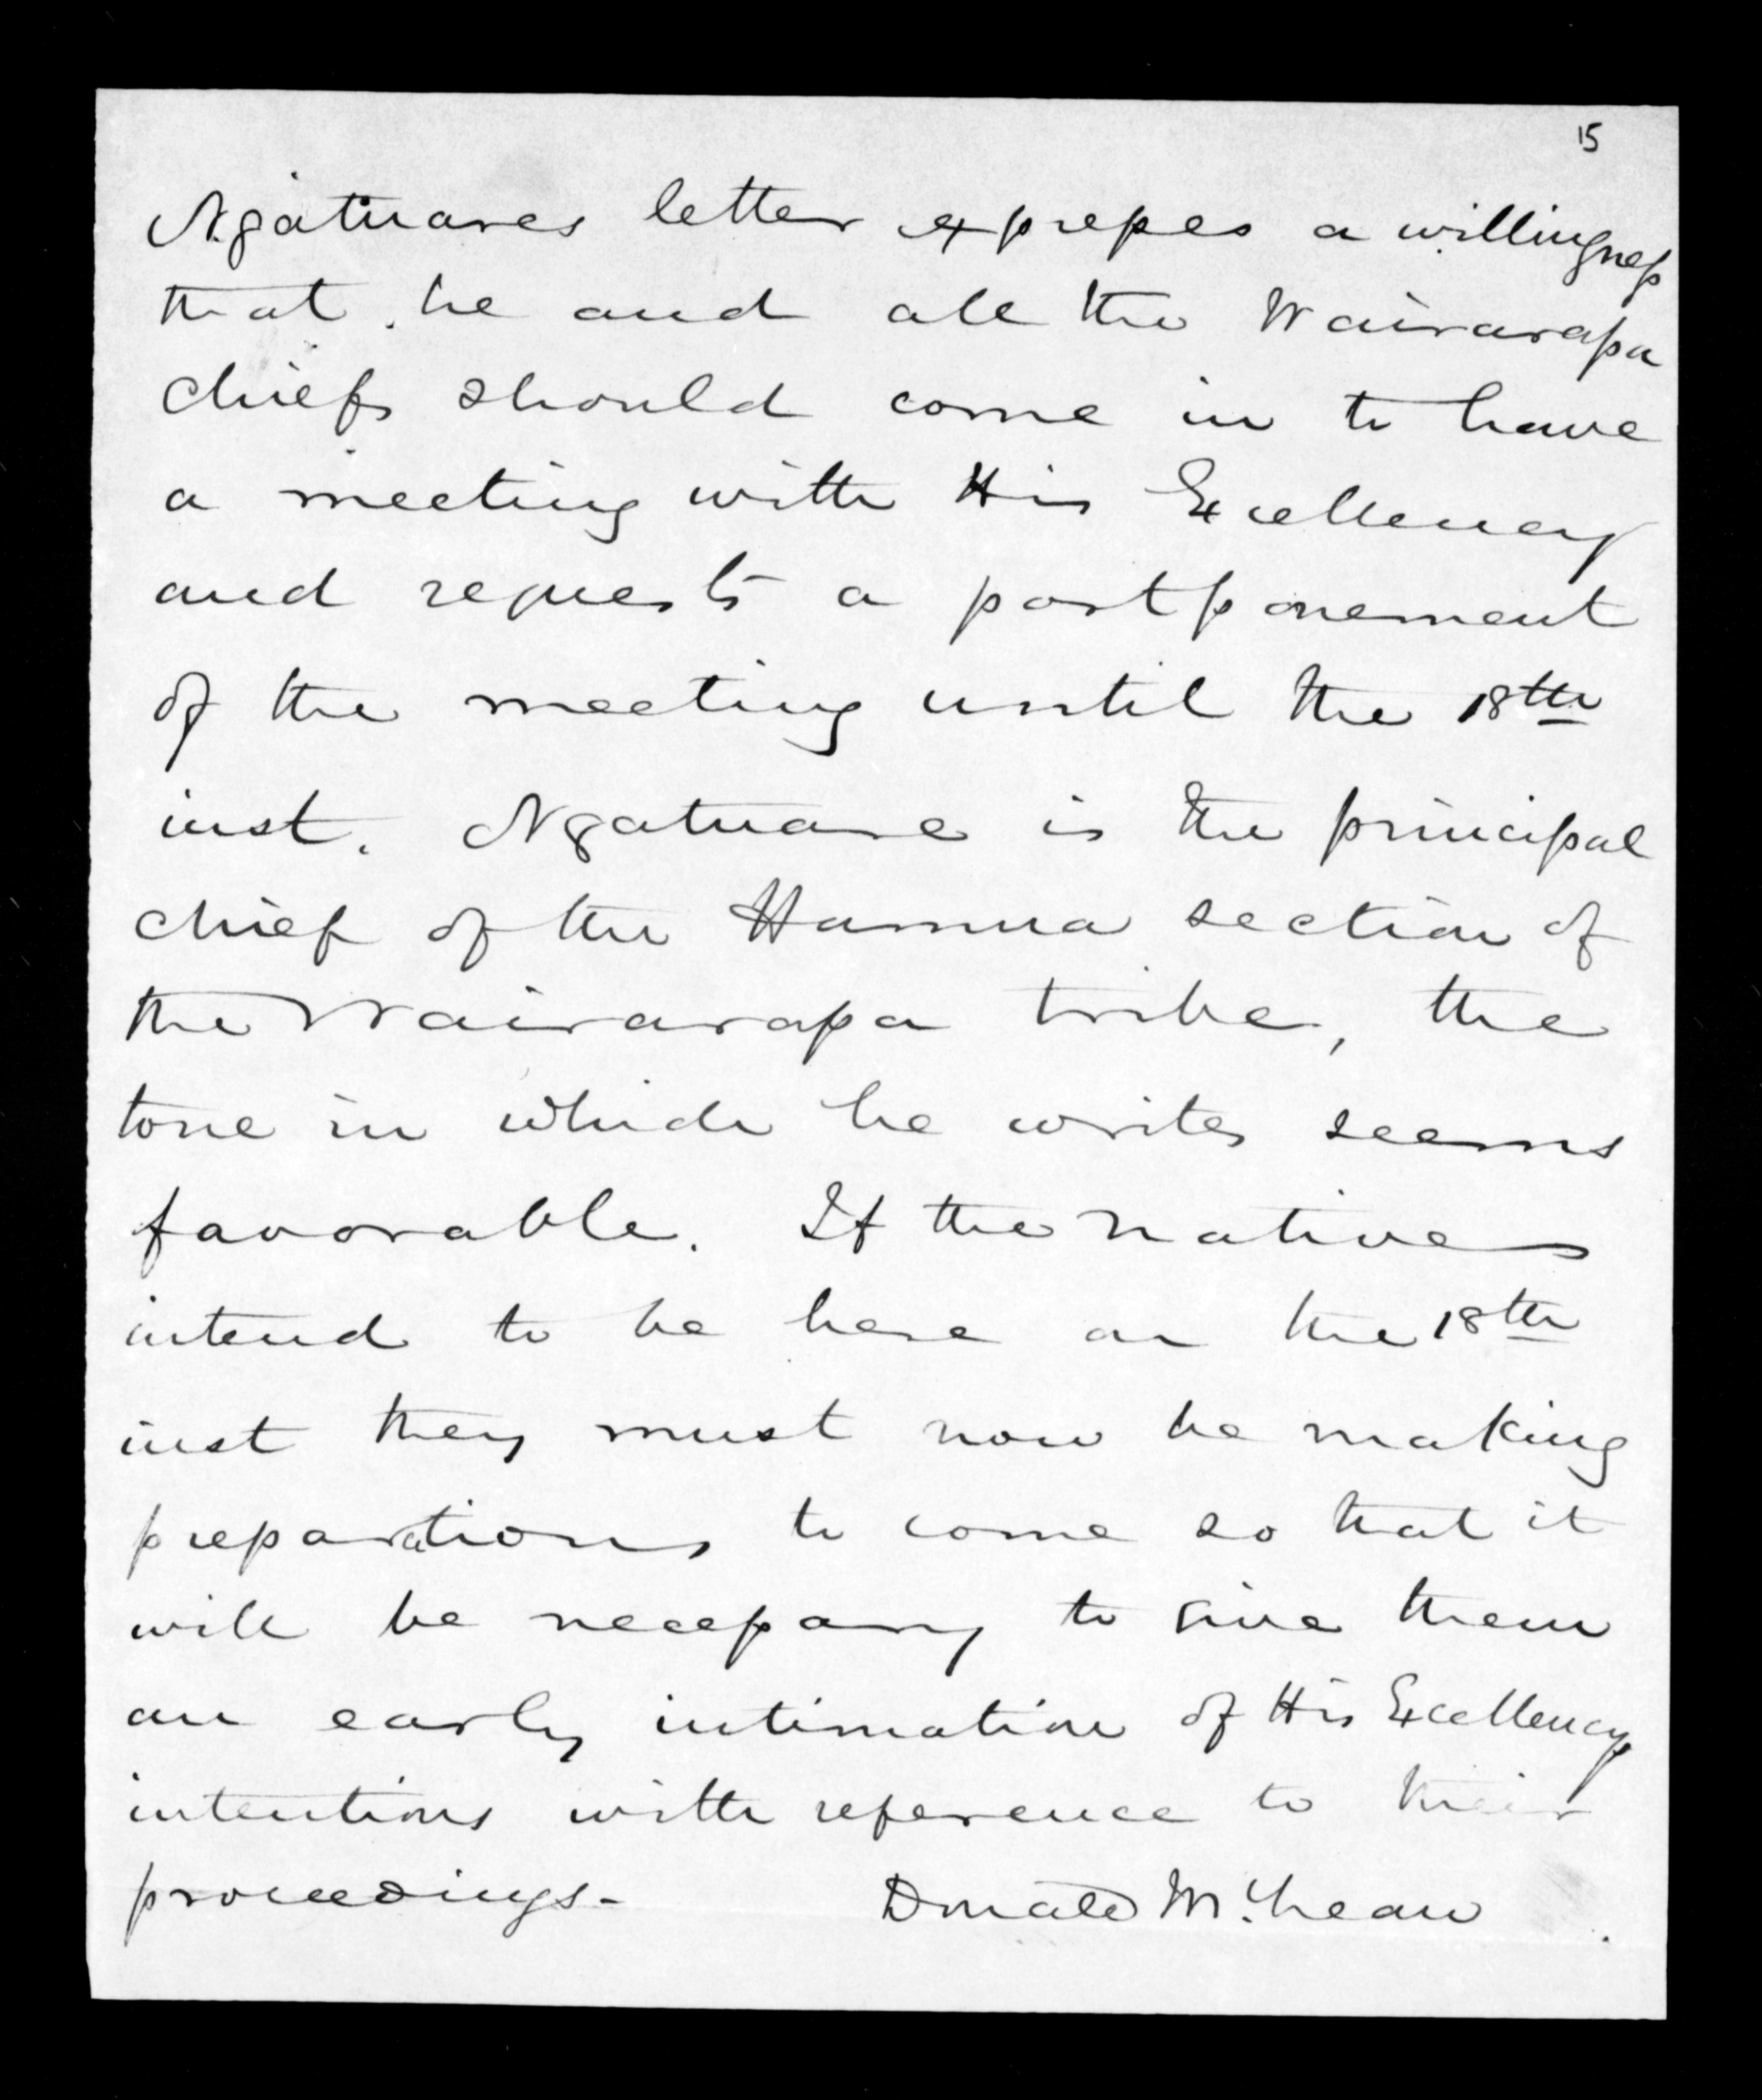 15
Ngatuares letter expresses a willingness
that he and all the Wairarapa
chiefs should come in to have
a meeting with His Excellency
and requests a postponement
of the meeting until the 18th
inst. Ngatuare is the principal
chief of the Hamua section of
the Wairarapa tribe, the
tone in which he writes seems
favorable. If the natives
intend to be here on the 18th
inst they must now be making
preparations to come so that it
will be necessary to give them
an early intimation of His Excellencys
intentions with reference to their
proceedings-
Donald McLean